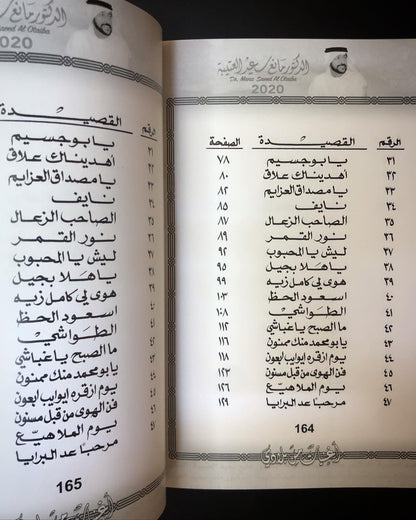 الدكتور مانع سعيد العتيبة
Dr. Mana Saeed Al Otaiba
2020
الرقم القصيدة الصفحة
٣١ يا بو جسيم ٧٨
٣٢ أهديناك علاق ٨٠
٣٣ يا مصداق العزايم ٨٢
٣٤ نايف ٨٥
٣٥ الصاحب الزعال ٨٧
٣٦ نور القمر ٨٩
٣٧ ليش يا المحبوب ٩٢
٣٨ يا هلا بجيل ٩٥
٣٩ هوى لي كامل زيه ٩٩
٤٠ اسعود الحظ ١٠٣
٤١ الطواشي ١٠٨
٤٢ ما الصبح ياغباشي ١١٢
٤٣ يا بو محمد منك ممنون ١١٦
٤٤ يوم ازقره ايوايب ابعون ١١٨
٤٥ فن الهوى من قبل مسنون ١٢٣
٤٦ يوم الملاهيع ١٢٦
٤٧ مرحبا عد البرايا ١٢٩
164
الدكتور مانع سعيد العتيبة
Saeed Al Otaiba
2020
الرقم القصيدة
٣١ يا بو جسيم
٣٢ أهديناك علاق
٣٣ يا مصداق العزايم
٣٤ نايف
٣٥ الصاحب الزعال
٣٦ نور القمر
٣٧ ليش يا المحبوب
٣٨ يا هلا بجيل
٣٩ هوى لي كامل زيه
٤٠ اسعود الحظ
٤١ الطواشي
٤٢ ما الصبح ياغباشي
٤٣ يا بو محمد منك ممنون
٤٤ يوم ازقره ايوايب ابعون
٤٥ فن الهوى من قبل مسنون
٤٦ يوم الملاهيع
٤٧ مرحبا عد البرايا
165